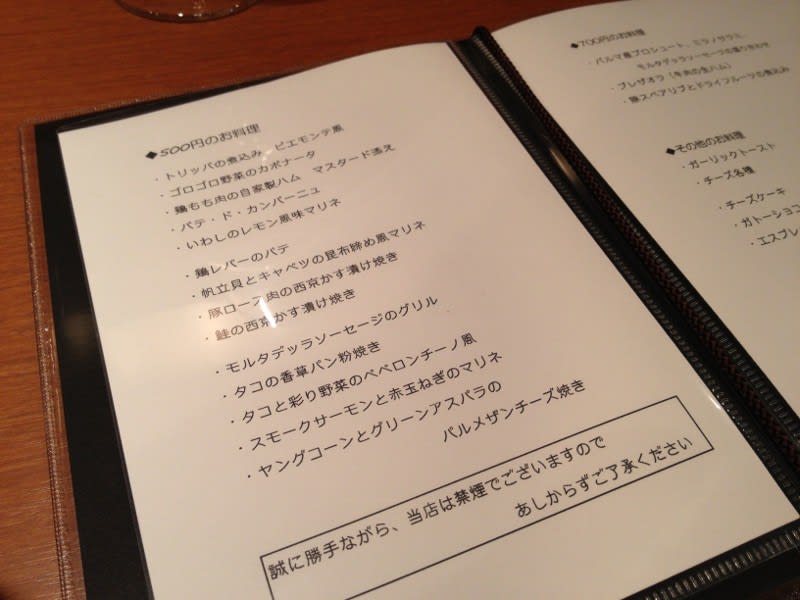 ◆500円のお料理
・トリッパの煮込み　ピエモンテ風
・ゴロゴロ野菜のカポナータ
・鶏もも肉の自家製ハム　マスタード添え
・パテ・ド・カンパーニュ
・いわしのレモン風味マリネ
・鶏レバーのパテ
・帆立貝とキャベツの昆布締め風マリネ
・豚ロース肉の西京かす漬け焼き
・鮭の西京かす漬け焼き
・モルタデッラソーセージのグリル
・タコの香草パン粉焼き
・タコと彩り野菜のペペロンチーノ風
・スモークサーモンと赤玉ねぎのマリネ
・ヤングコーンとグリーンアスパラの
パルメザンチーズ焼き
誠に勝手ながら、当店は禁煙でございますので
あしからずご了承ください
◆700円のお料理
・パルマ産プロシュート、ミラノサラミ、
モルタデッラソーセージの盛り合わせ
・ブレザオラ（牛肉の生ハム）
・豚スペアリブとドライフルーツの煮込み
◆その他のお料理
・ガーリックトースト
・チーズ各種
・チーズケーキ
・ガトーショコ
・エスプレ